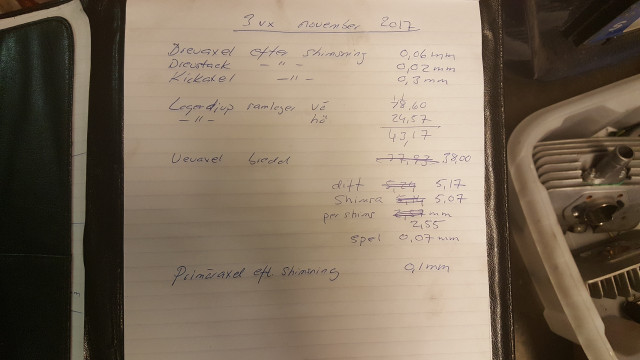 3 vx november 2017
Drevaxel efter shimsning 0,06 mm
Drevstack - " - 0,02 mm
Kickaxel - " - 0,3 mm
Lagerdjup ramlager vä 18,60
- " - hö 24,57
43,17
Vevaxel bredd 38,00
diff 5,17
Shimsa 5,07
per shims mm
2,55
spel 0,07 mm
Primäraxel eft. shimsning 0,1 mm